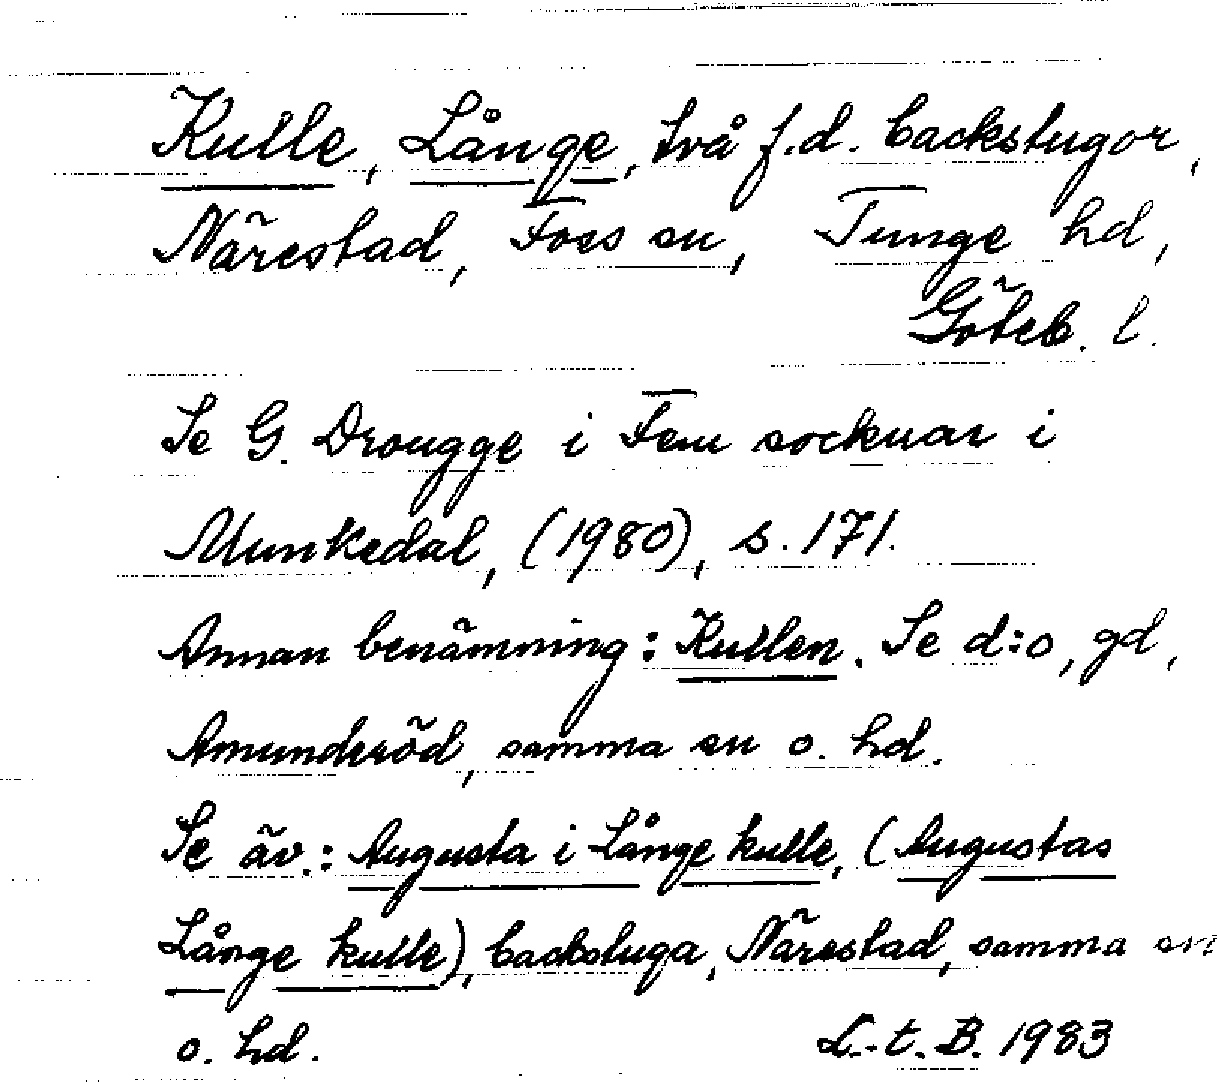 Kulle, Långe, två f.d. backstugor,
Närestad, Foss sn, Tunge hd,
Göteb. l.
Se G. Drougge i Fem socknar i
Munkedal, (1980), s. 171.
Annan benämning: Kullen. Se d:o, gd,
Amunderöd, samma sn o. hd.
Se äv.: Augusta i Långe kulle, (Augustas
Långe kulle), backstuga, Närestad, samma sn
o. hd. L.-t. B. 1983